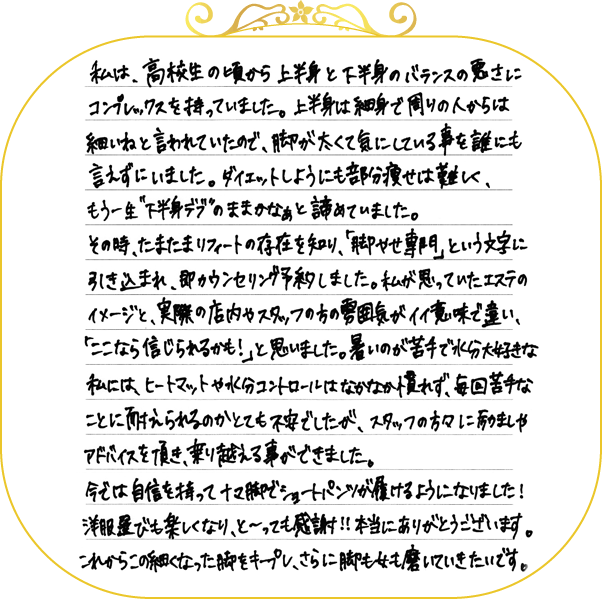 私は、高校生の頃から上半身と下半身のバランスの悪さに
コンプレックスを持っていました。上半身は細身で周りの人からは
細いねと言われていたので、脚が太くて気にしている事を誰にも
言えずにいました。ダイエットしようにも部分痩せは難しく、
もう一生"下半身デブ"のままかなぁと諦めていました。
その時、たまたまリフィートの存在を知り、「脚やせ専門」という文字に
引き込まれ、即カウンセリング予約しました。私が思っていたエステの
イメージと、実際の店内やスタッフの方の雰囲気がイイ意味で違い、
「ここなら信じられるかも!」と思いました。暑いのが苦手で水分大好きな
私には、ヒートマットや水分コントロールはなかなか慣れず、毎回苦手な
ことに耐えられるのかとても不安でしたが、スタッフの方々に励ましや
アドバイスを頂き、乗り越える事ができました。
今では自信を持ってナマ脚でショートパンツが履けるようになりました!
洋服選びも楽しくなり、と〜っても感謝!!本当にありがとうございます。
これからこの細くなった脚をキープし、さらに脚も女も磨いていきたいです。